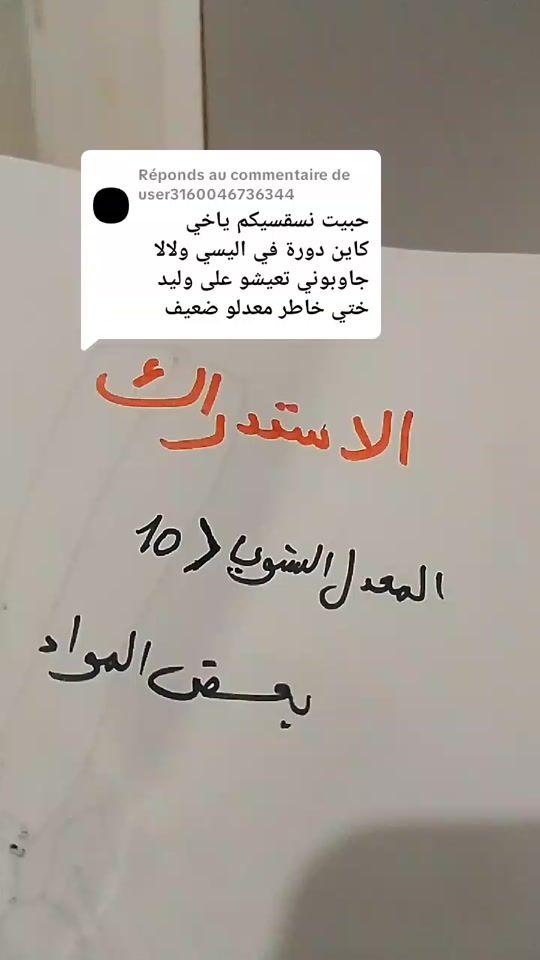 Réponds au commentaire de
user3160046736344
حبيت نسقسيكم ياخي
كاين دورة في اليسي ولالا
جاوبوني تعيشو على وليد
ختي خاطر معدلو ضعيف
الاستدراك
المعدل السنوي < 10
بعض المواد